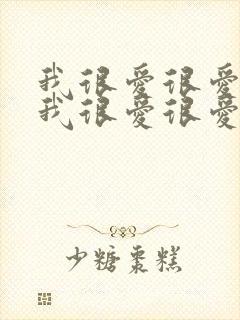 我很爱很爱
我很爱很爱
少糖枣糕